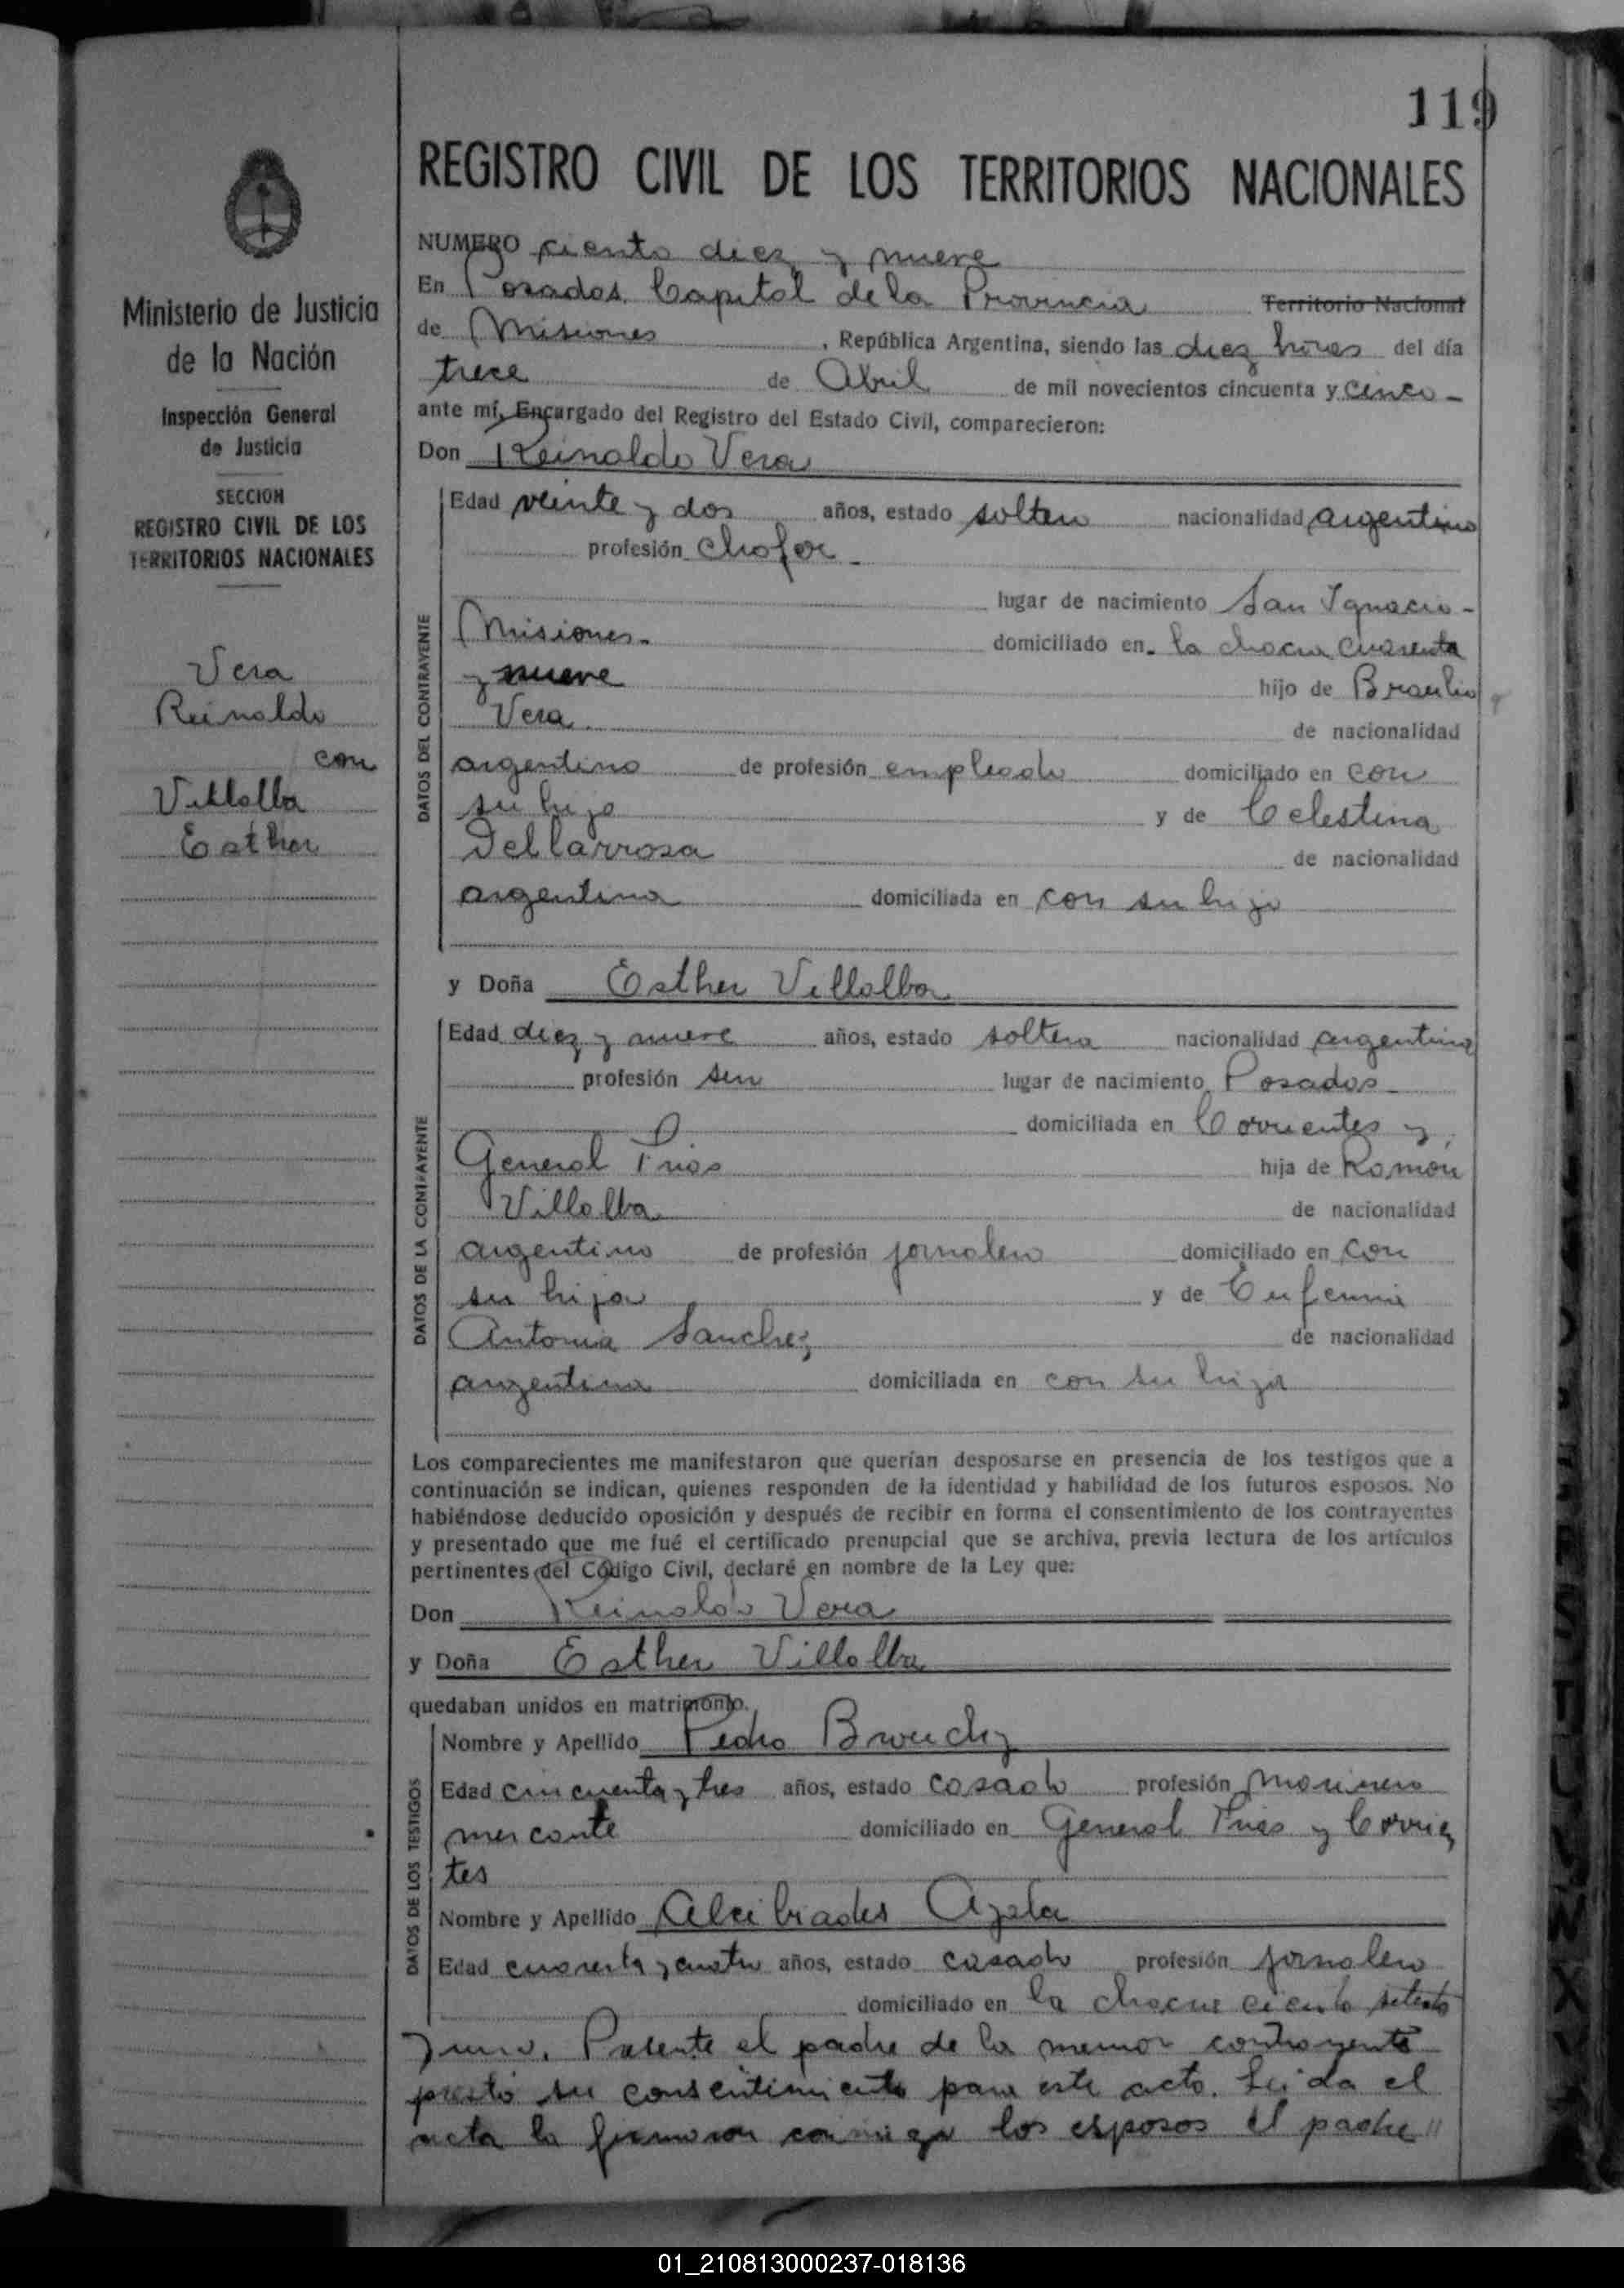 119
REGISTRO CIVIL DE LOS TERRITORIOS NACIONALES
Ministerio de Justicia
de la Nación
Inspección General
de Justicia
SECCION
REGISTRO CIVIL DE LOS
TERRITORIOS NACIONALES
Vera
Reinaldo
con
Villalba
Esther
NUMERO ciento diez y nueve
En Posadas Capital de la Provincia Territorio Nacional
de Misiones, República Argentina, siendo las diez horas del día
trece de Abril de mil novecientos cincuenta y cinco -
ante mí, Encargado del Registro del Estado Civil, comparecieron:
Don Reinaldo Vera
DATOS DEL CONTRAYENTE
Edad veinte y dos años, estado soltero nacionalidad argentino
profesión chofer -
lugar de nacimiento San Ignacio -
Misiones - domiciliado en la chacra cuarenta
y nueve hijo de Braulio
Vera de nacionalidad
argentino de profesión empleado domiciliado en con
su hijo y de Celestina
Dellarrosa de nacionalidad
argentina domiciliada en con su hijo
y Doña Esther Villalba
DATOS DE LA CONTRAYENTE
Edad diez y nueve años, estado soltera nacionalidad argentina
profesión sin lugar de nacimiento Posadas
domiciliada en Corrientes y
General Frias hija de Ramón
Villalba de nacionalidad
argentino de profesión jornalero domiciliado en con
su hija y de Eufemia
Antonia Sanchez de nacionalidad
argentina domiciliada en con su hija
Los comparecientes me manifestaron que querían desposarse en presencia de los testigos que a
continuación se indican, quienes responden de la identidad y habilidad de los futuros esposos. No
habiéndose deducido oposición y después de recibir en forma el consentimiento de los contrayentes
y presentado que me fué el certificado prenupcial que se archiva, previa lectura de los artículos
pertinentes del Código Civil, declaré en nombre de la Ley que:
Don Reinaldo Vera
y Doña Esther Villalba
quedaban unidos en matrimonio.
DATOS DE LOS TESTIGOS
Nombre y Apellido Pedro
Edad cincuenta y tres años, estado casado profesión marinero
mercante domiciliado en General Frias y Corrien
tes
Nombre y Apellido Alcibiades Ayala
Edad cuarenta y cuatro años, estado casado profesión jornalero
domiciliado en la chacra ciento setenta
y uno. Presente el padre de la menor contrayente
prestó su consentimiento para este acto. Leida el
acta la firmaron conmigo los esposos el padre //
01_210813000237-018136